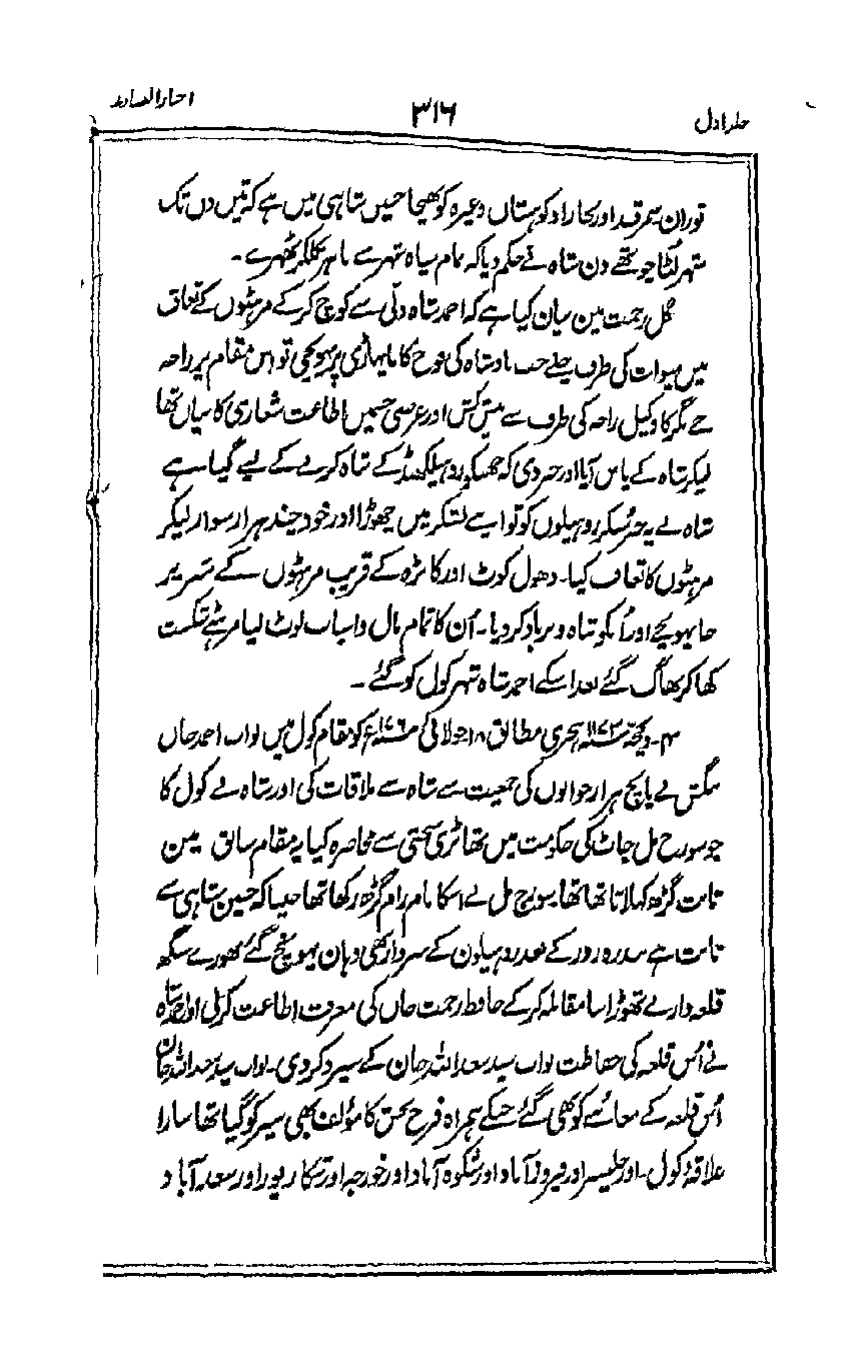 اخبار الصنادید
۳۱۶
جلد اول
توران سمرقند اور بخارا و کوہستان وغیرہ کو بھیجا حسین شاہی میں ہے کہ تین دن تک
شہر لٹا چوتھے دن شاہ نے حکم دیا کہ تمام سپاہ شہر سے باہر نکلکر ٹھہرے۔
گل رحمت مین بیان کیا ہے کہ احمد شاہ دلّی سے کوچ کرکے مرہٹوں کے تعاقب
میں میوات کی طرف چلے جب بادشاہ کی فوج کا ماپہاڑی پر پہونچی تو اس مقام پر راجہ
جے نگر کا وکیل راجہ کی طرف سے پیش کش اور عرضی جسمیں اطاعت شعاری کا بیان تھا
لیکر شاہ کے پاس آیا اور خبر دی کہ جھنکو روہیلکھنڈ کے تباہ کرنے کے لیے گیا ہے
شاہ نے یہ خبر سنکر روہیلوں کو تو اپنے لشکر میں چھوڑا اور خود چند ہزار سوار لیکر
مرہٹوں کا تعاقب کیا۔ دھول کوٹ اور کانڑہ کے قریب مرہٹوں کے سر پر
جا پہونچے اور اُنکو تباہ و برباد کر دیا۔ اُن کا تمام مال و اسباب لوٹ لیا مرہٹے شکست
کھا کر بھاگ گئے بعد اسکے احمد شاہ شہر کول کو گئے۔
۴۔ ذیحجہ ۱۱۷۳ ہجری مطابق ۱۸ جولائی ۱۷۶۰ء کو مقام کول میں نواب احمد خاں
بنگش نے پانچ ہزار جوانوں کی جمعیت سے شاہ سے ملاقات کی اور شاہ نے کول کا
جو سورج مل جاٹ کی حکومت میں تھا بڑی سختی سے محاصرہ کیا یہ مقام سابق مین
ثابت گڑھ کہلاتا تھا سورج مل نے اسکا نام رام گڑھ رکھا تھا جیسا کہ حسین شاہی سے
ثابت ہے پندرہ روز کے بعد روہیلون کے سردار بھی وہان پہونچ گئے بھورے سنگھ
قلعہ دار نے تھوڑا سا مقابلہ کرکے حافظ رحمت خاں کی معرفت اطاعت کرلی اور احمد شاہ
نے اُس قلعہ کی حفاظت نواب سید سعد اللہ خان کے سپرد کر دی۔ نواب سید سعد اللہ خان
اُس قلعہ کے معائنے کو بھی گئے جنکے ہمراہ فرح بخش کا مؤلف بھی سیر کو گیا تھا سارا
علاقۂ کول۔ اور جلیسر اور فیروز آباد اور شکوہ آباد اور خورجہ اور شکار پور اور سعد آباد